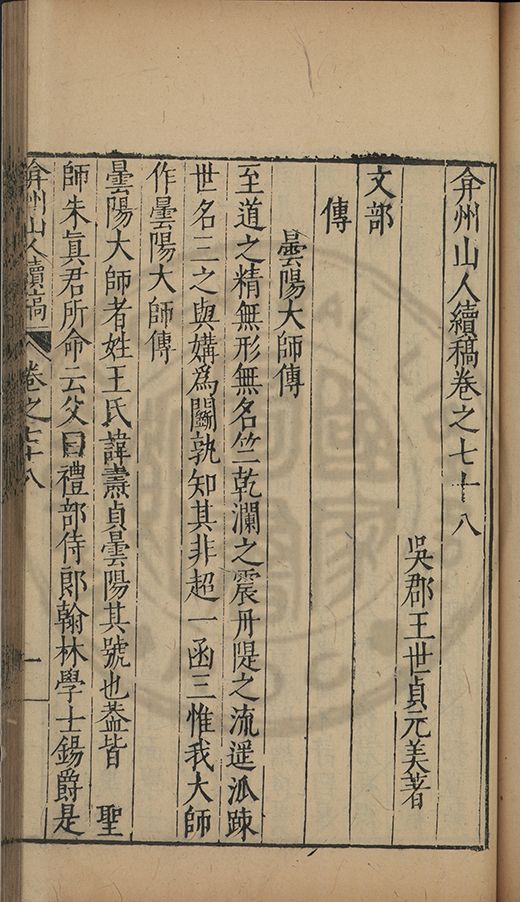 弇州山人續稿卷之七十八
吳郡王世貞元美著
文部
傳
曇陽大師傳
至道之精無形無名竺乾瀾之震丹隄之流遥泒踈
世名三之與媾為鬭孰知其非超一函三惟我大師
作曇陽大師傳
曇陽大師者姓王氏諱燾貞曇陽其號也葢皆 聖
師朱真君所命云父曰禮部侍郎翰林學士錫爵是
弇州山人續稿 卷之七十八 一